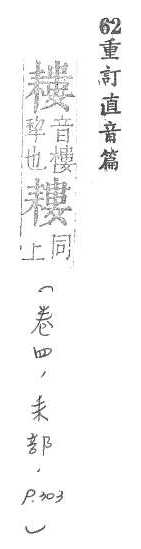 62重訂直音篇
耬音樓犂也耬同上
(卷四，耒部，P.303)